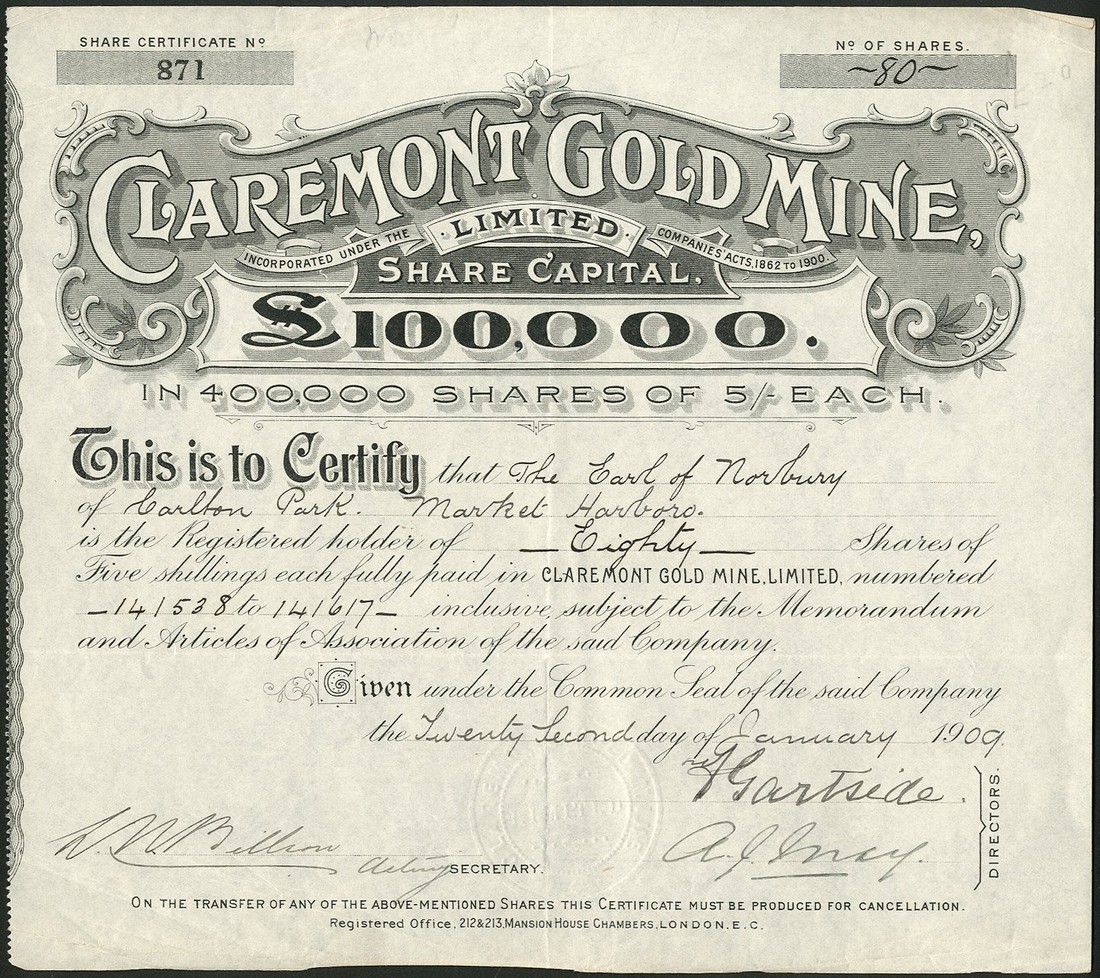 SHARE CERTIFICATE Nº
871
Nº OF SHARES.
~80~
CLAREMONT GOLD MINE,
LIMITED
INCORPORATED UNDER THE COMPANIES' ACTS, 1862 TO 1900.
SHARE CAPITAL.
£100,000.
IN 400,000 SHARES OF 5/- EACH.
This is to Certify that The Earl of Norbury
of Carlton Park. Market Harboro.
is the Registered holder of — Eighty — Shares of
Five shillings each fully paid in CLAREMONT GOLD MINE, LIMITED, numbered
— 141538 to 141617 — inclusive, subject to the Memorandum
and Articles of Association of the said Company.
Given under the Common Seal of the said Company
the Twenty Second day of January 1909.
Gartside.
DIRECTORS.
Billson
acting SECRETARY.
ON THE TRANSFER OF ANY OF THE ABOVE-MENTIONED SHARES THIS CERTIFICATE MUST BE PRODUCED FOR CANCELLATION.
Registered Office, 212 & 213, MANSION HOUSE CHAMBERS, LONDON. E.C.